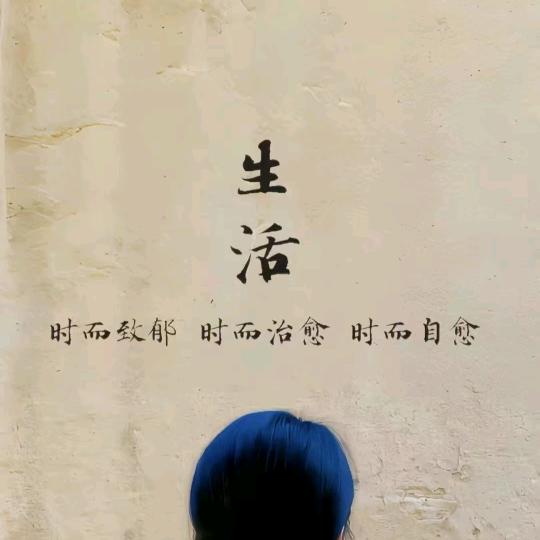 生
活
时而致郁 时而治愈 时而自愈